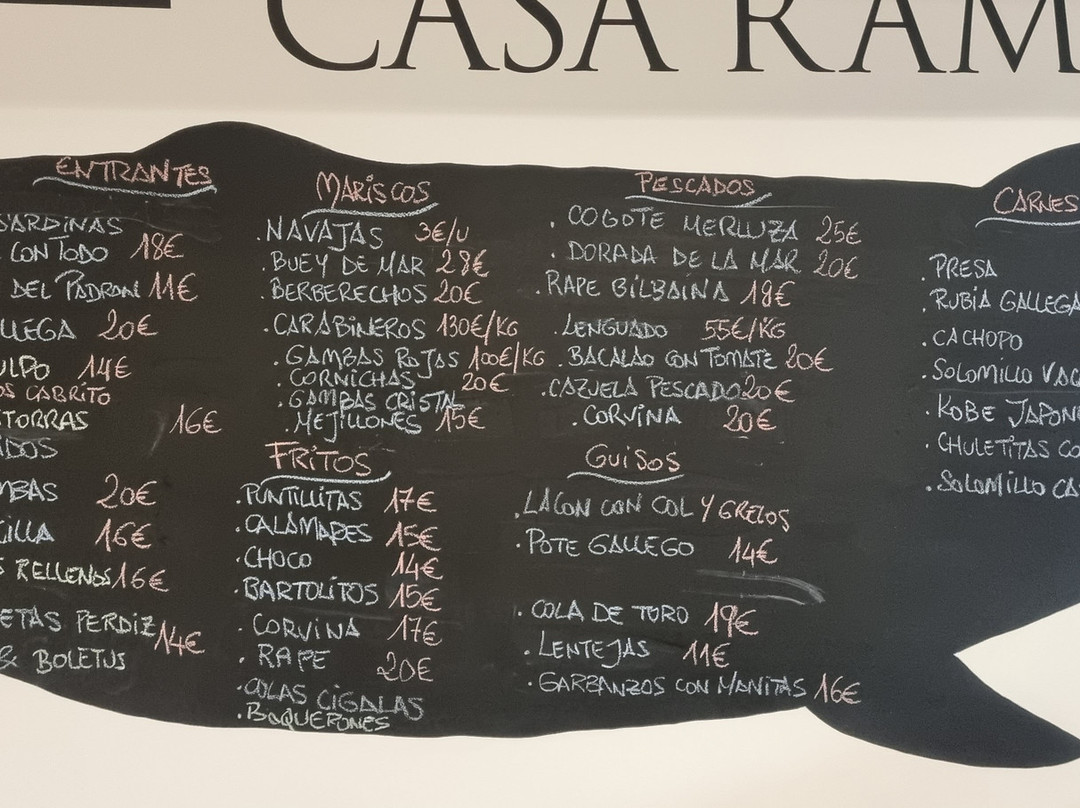 CASA RAM
ENTRANTES
SARDINAS
CON TODO 18€
DEL PADRON 11€
LLEGA 20€
ULPO 14€
OS CABRITO
TORRAS 16€
IDOS
MBAS 20€
CILLA 16€
S RELLENOS 16€
ETAS PERDIZ 14€
& BOLETUS
MARISCOS
. NAVAJAS 3€/U
. BUEY DE MAR 28€
. BERBERECHOS 20€
. CARABINEROS 130€/KG
. GAMBAS ROJAS 100€/KG
. CORNICHAS 20€
. GAMBAS CRISTAL
. MEJILLONES 15€
FRITOS
. PUNTILLITAS 17€
. CALAMARES 15€
. CHOCO 14€
. BARTOLITOS 15€
. CORVINA 17€
. RAPE 20€
. COLAS CIGALAS
. BOQUERONES
PESCADOS
. COGOTE MERLUZA 25€
. DORADA DE LA MAR 20€
. RAPE BILBAINA 18€
. LENGUADO 55€/KG
. BACALAO CON TOMATE 20€
. CAZUELA PESCADO 20€
. CORVINA 20€
GUISOS
. LACON CON COL Y GRELOS
. POTE GALLEGO 14€
. COLA DE TORO 19€
. LENTEJAS 11€
. GARBANZOS CON MANITAS 16€
CARNES
. PRESA
. RUBIA GALLEGA
. CACHOPO
. SOLOMILLO VAC
. KOBE JAPON
. CHULETITAS CO
. SOLOMILLO CA